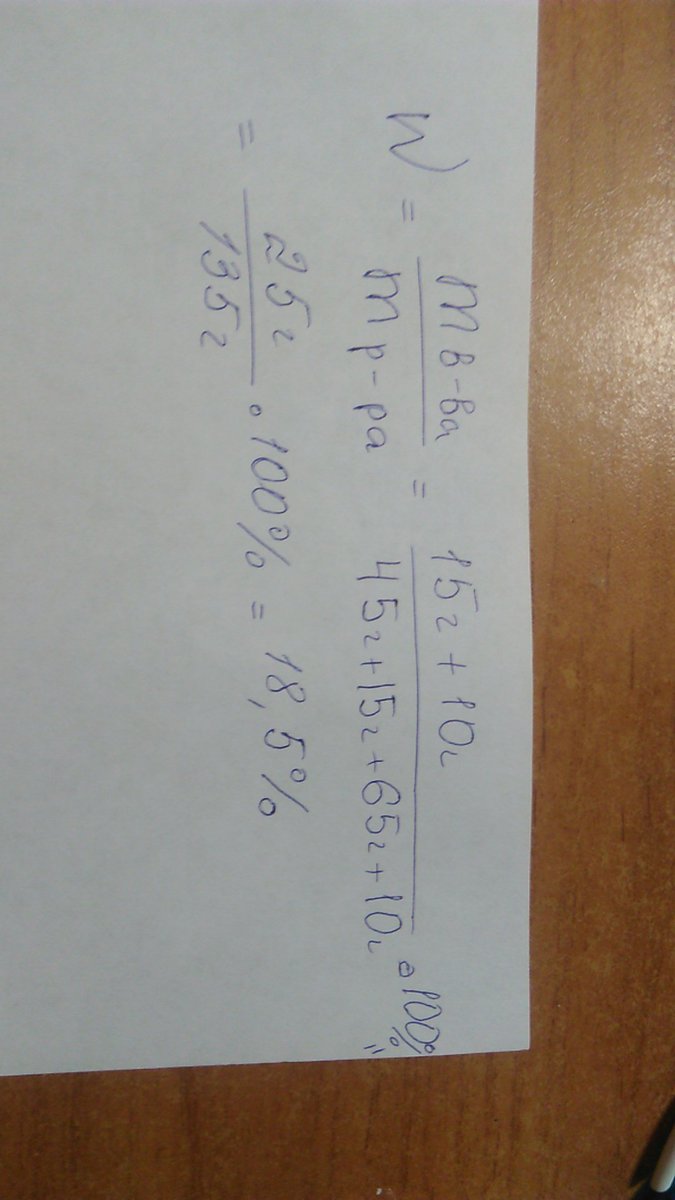 W = m в-ва / m р-ра = 15г + 10г / 45г + 15г + 65г + 10г · 100% =
= 25г / 135г · 100% = 18,5%